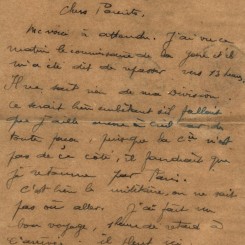 Chers Parents,
Me voici à attendre. J'ai vu ce
matin le commissaire de la gare et il
m'a été dit de repasser vers 13 heures.
Il ne sait rien de ma Division.
Ce serait bien embêtant s'il fallait
que j'aille à Creil car de
toute façon, puisque la Cie n'est
pas de ce côté, il faudrait que
je retourne par Paris.
C'est bien le militaire, on ne sait
pas où aller. J'ai fait un
bon voyage, 1 heure de retard